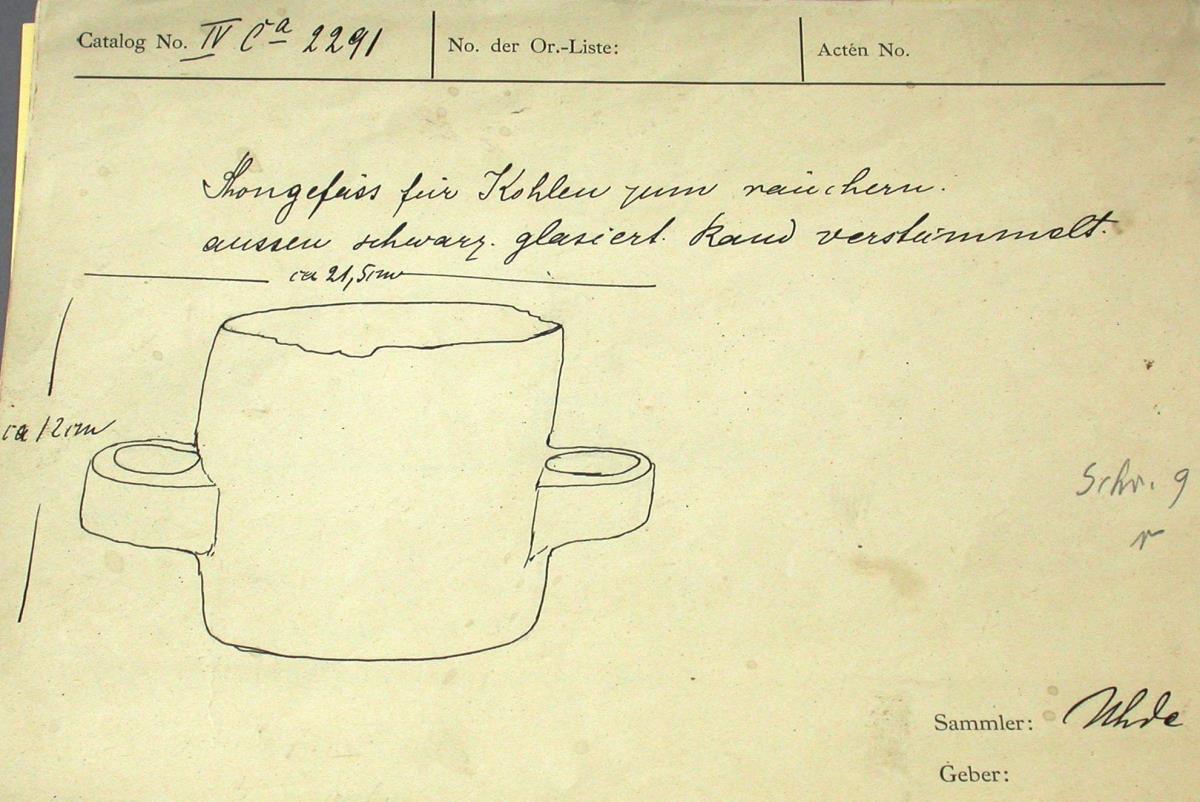 Catalog No. IV Ca 2291
No. der Or.-Liste:
Acten No.
Thongefäss für Kohlen zum räuchern.
aussen schwarz. glasiert. Rand verstümmelt.
ca 21,5cm
ca 12cm
Schr. 9
r
Sammler: Uhde
Geber: